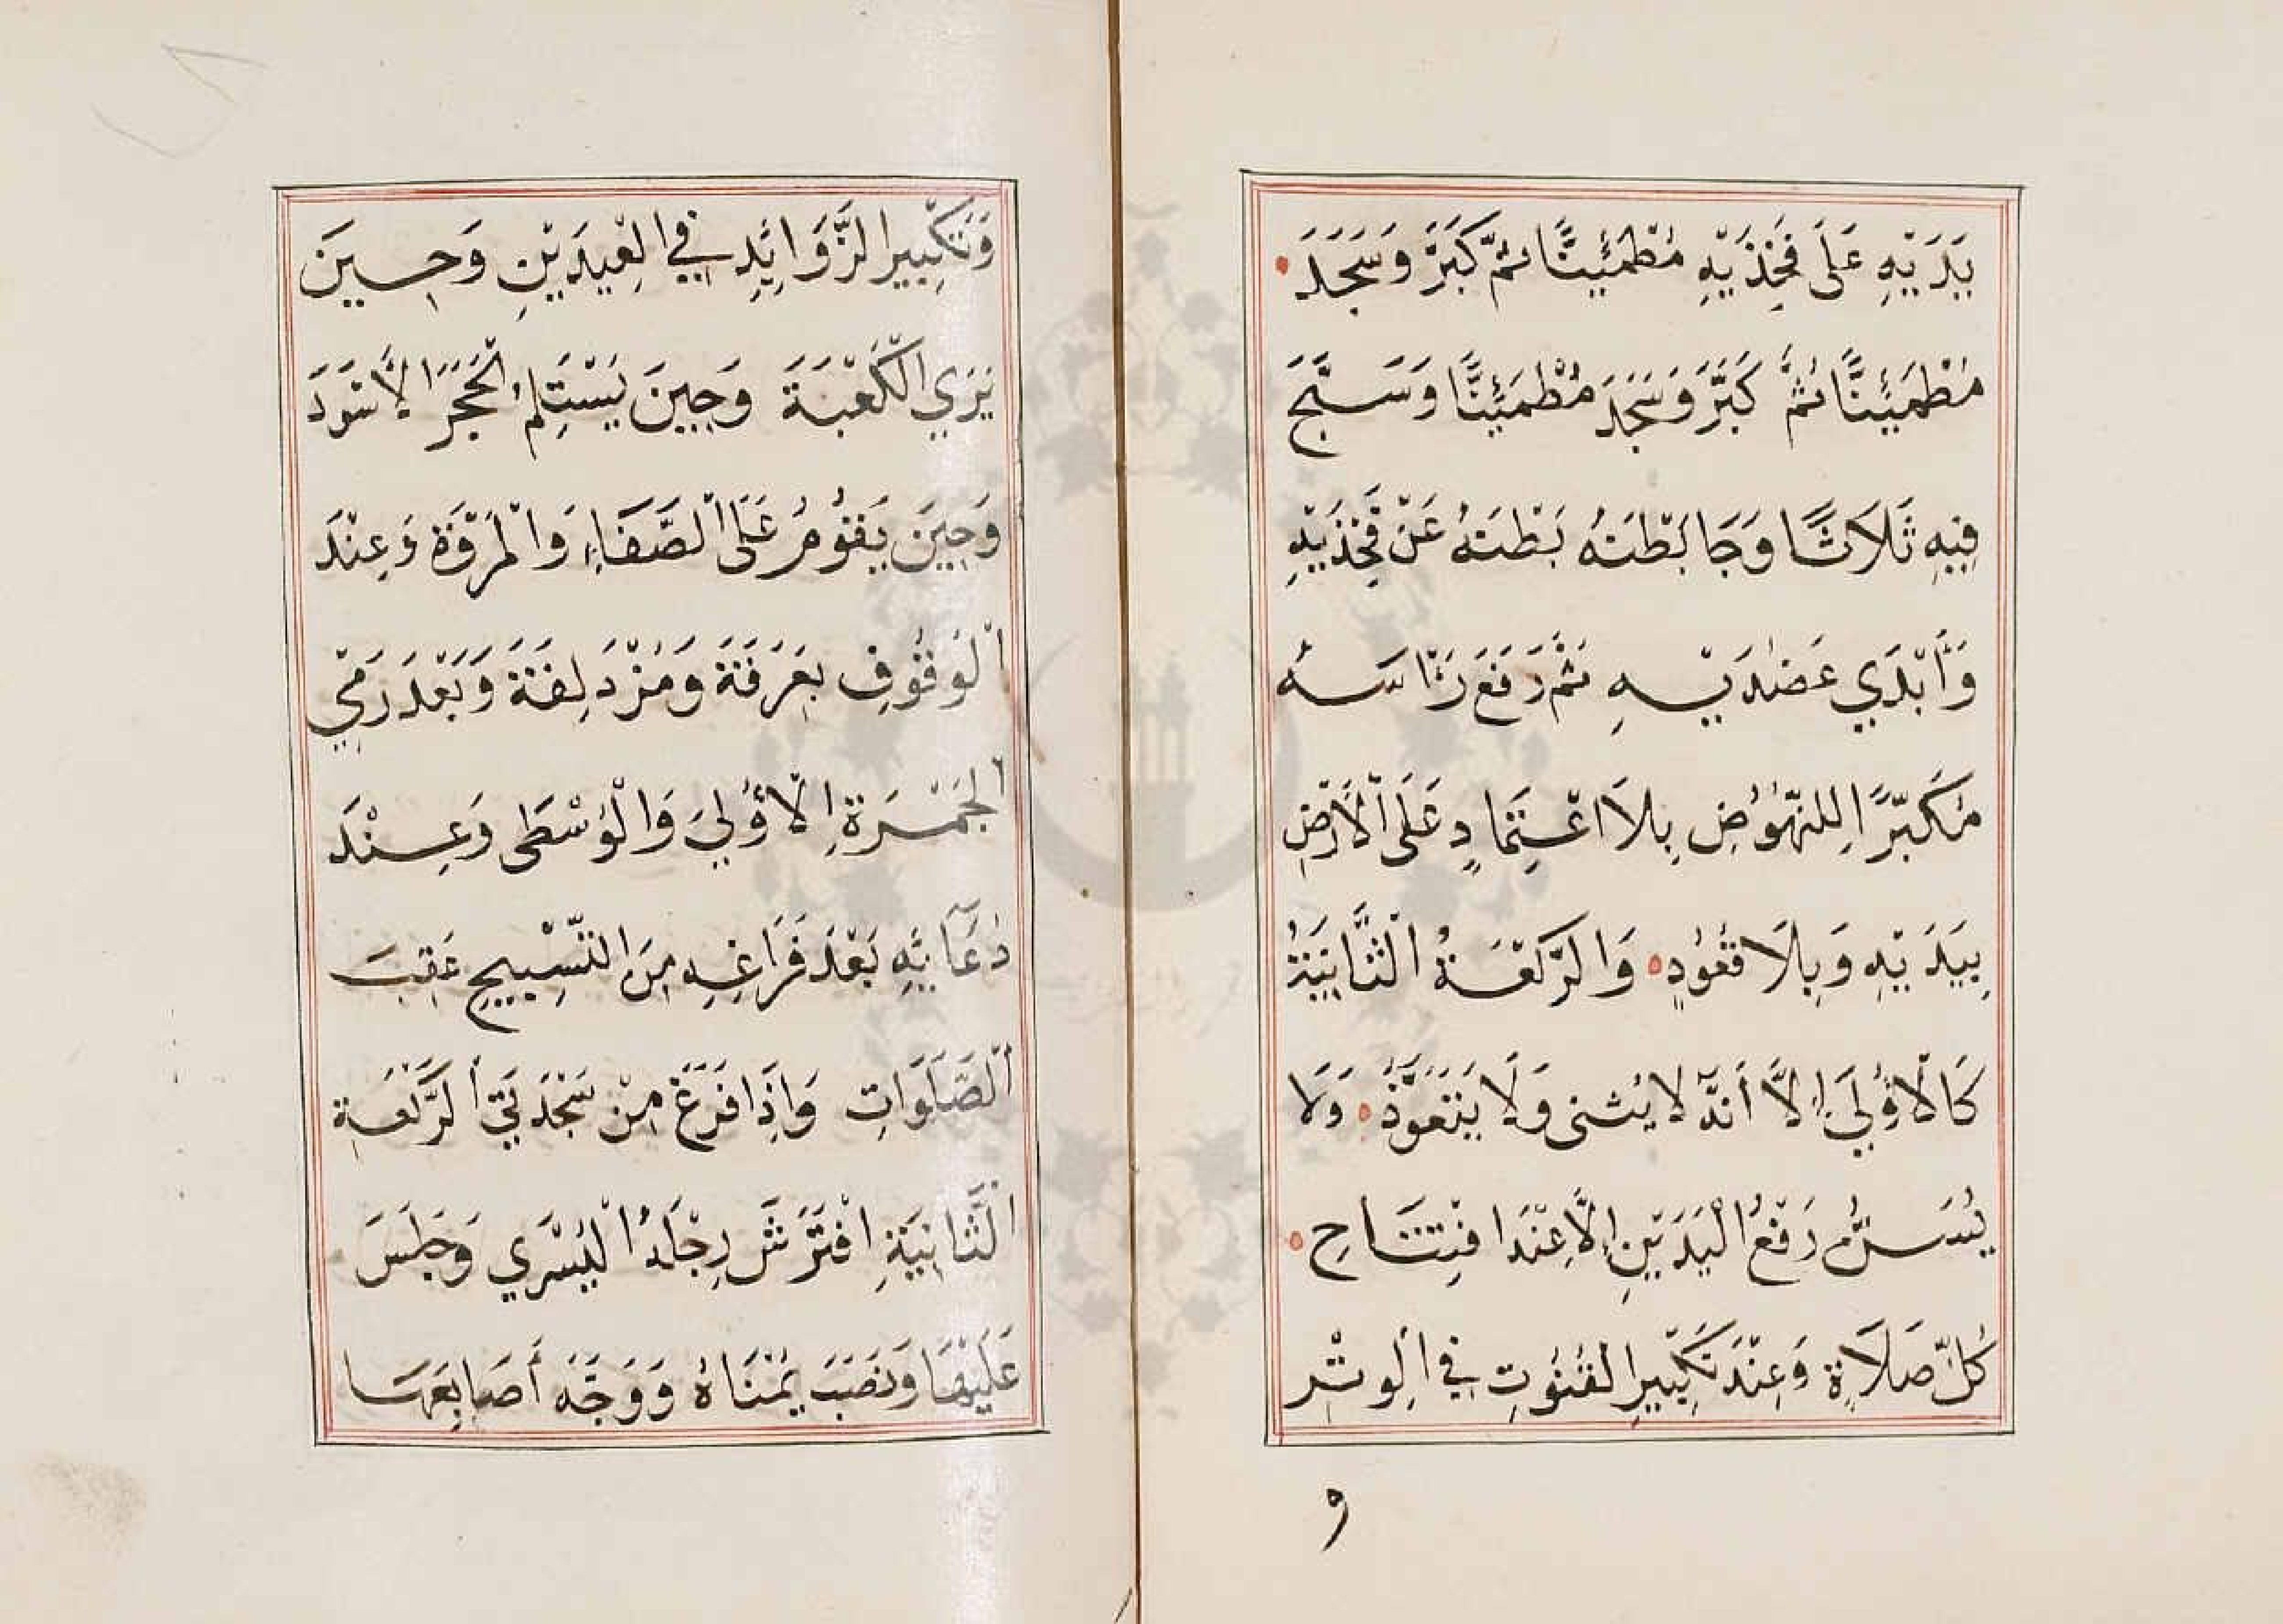 يَدَيْهِ عَلَى فَخِذَيْهِ مُطْمَئِنًّا ثُمَّ كَبَّرَ وَسَجَدَ
مُطْمَئِنًّا ثُمَّ كَبَّرَ وَسَجَدَ مُطْمَئِنًّا وَسَبَّحَ
فِيهِ ثَلَاثًا وَجَا بَطْنَهُ بَطْنَهُ عَنْ فَخِذَيْهِ
وَأَبْدَي عَضُدَيْهِ ثُمَّ رَفَعَ رَأْسَهُ
مُكَبِّرًا لِلنُّهُوضِ بِلَا اعْتِمَادٍ عَلَى الْأَرْضِ
بِيَدَيْهِ وَبِلَا قُعُودٍ وَالرَّكْعَةُ الثَّانِيَةُ
كَالْأُولَي إِلَّا أَنَّهُ لَا يُثنى وَلَا يَتَعَوَّذُ وَلَا
يُسَنُّ رَفْعُ الْيَدَيْنِ إِلَّا عِنْدَ افْتِتَاحِ
كُلِّ صَلَاةٍ وَعِنْدَ تَكْبِيرِ الْقُنُوتِ فِي الْوِتْرِ
٩
وَتَكْبِيرِ الزَّوَائِدِ فِي الْعِيدَيْنِ وَحِينَ
يَرَي الْكَعْبَةَ وَحِينَ يَسْتَلِمُ الْحَجَرَ الْأَسْوَدَ
وَحِينَ يَقُومُ عَلَى الصَّفَاءِ وَالْمَرْوَةِ وَعِنْدَ
الْوُقُوفِ بِعَرَفَةَ وَمُزْدَلِفَةَ وَبَعْدَ رَمْيِ
الْجَمْرَةِ الْأُولَي وَالْوُسْطَى وَعِنْدَ
دُعَائِهِ بَعْدَ فَرَاغِهِ مِنَ التَّسْبِيحِ عَقِبَ
الصَّلَوَاتِ وَإِذَا فَرَغَ مِنْ سَجْدَتَيِ الرَّكْعَةِ
الثَّانِيَةِ افْتَرَشَ رِجْلَهُ الْيُسْرَي وَجَلَسَ
عَلَيْهَا وَنَصَبَ يُمْنَاهُ وَوَجَّهَ أَصَابِعَهَا